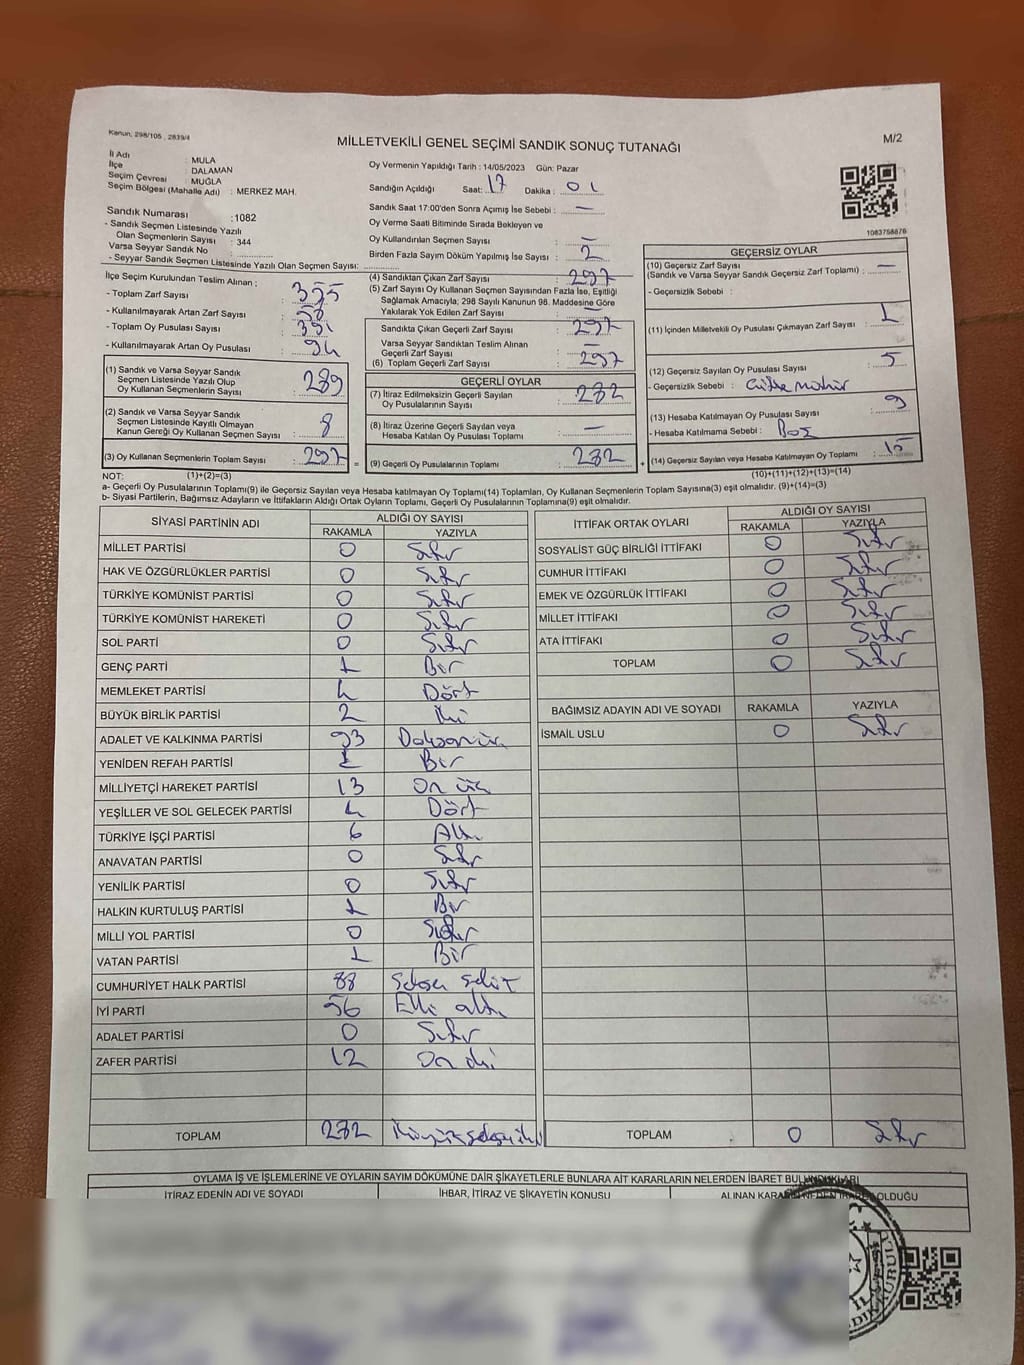 Kanun, 298/105 , 2839/4
MİLLETVEKİLİ GENEL SEÇİMİ SANDIK SONUÇ TUTANAĞI
M/2
İl Adı : MULA
İlçe : DALAMAN
Seçim Çevresi : MUĞLA
Seçim Bölgesi (Mahalle Adı) : MERKEZ MAH.
Sandık Numarası :1082
- Sandık Seçmen Listesinde Yazılı
Olan Seçmenlerin Sayısı : 344
Varsa Seyyar Sandık No :
- Seyyar Sandık Seçmen Listesinde Yazılı Olan Seçmen Sayısı:
Oy Vermenin Yapıldığı Tarih : 14/05/2023 Gün: Pazar
Sandığın Açıldığı Saat: 17 Dakika : 01
Sandık Saat 17:00'den Sonra Açımış İse Sebebi : —
Oy Verme Saati Bitiminde Sırada Bekleyen ve
Oy Kullandırılan Seçmen Sayısı : —
Birden Fazla Sayım Döküm Yapılmış İse Sayısı : 2
1083758876
İlçe Seçim Kurulundan Teslim Alınan ;
- Toplam Zarf Sayısı : 355
- Kullanılmayarak Artan Zarf Sayısı : 58
- Toplam Oy Pusulası Sayısı : 391
- Kullanılmayarak Artan Oy Pusulası : 94
(1) Sandık ve Varsa Seyyar Sandık
Seçmen Listesinde Yazılı Olup
Oy Kullanan Seçmenlerin Sayısı : 289
(2) Sandık ve Varsa Seyyar Sandık
Seçmen Listesinde Kayıtlı Olmayan
Kanun Gereği Oy Kullanan Seçmen Sayısı : 8
(3) Oy Kullanan Seçmenlerin Toplam Sayısı : 297
(4) Sandıktan Çıkan Zarf Sayısı : 297
(5) Zarf Sayısı Oy Kullanan Seçmen Sayısından Fazla İse, Eşitliği
Sağlamak Amacıyla; 298 Sayılı Kanunun 98. Maddesine Göre
Yakılarak Yok Edilen Zarf Sayısı : —
Sandıkta Çıkan Geçerli Zarf Sayısı : 297
Varsa Seyyar Sandıktan Teslim Alınan
Geçerli Zarf Sayısı : —
(6) Toplam Geçerli Zarf Sayısı : 297
GEÇERLİ OYLAR
(7) İtiraz Edilmeksizin Geçerli Sayılan
Oy Pusulalarının Sayısı : 282
(8) İtiraz Üzerine Geçerli Sayılan veya
Hesaba Katılan Oy Pusulası Toplamı : —
= (9) Geçerli Oy Pusulalarının Toplamı : 282 +
GEÇERSİZ OYLAR
(10) Geçersiz Zarf Sayısı
(Sandık ve Varsa Seyyar Sandık Geçersiz Zarf Toplamı) : —
- Geçersizlik Sebebi :
(11) İçinden Milletvekili Oy Pusulası Çıkmayan Zarf Sayısı : 1
(12) Geçersiz Sayılan Oy Pusulası Sayısı : 5
- Geçersizlik Sebebi : Çifte Mühür
(13) Hesaba Katılmayan Oy Pusulası Sayısı : 9
- Hesaba Katılmama Sebebi : Boş
(14) Geçersiz Sayılan veya Hesaba Katılmayan Oy Toplamı : 15
NOT: (1)+(2)=(3) (10)+(11)+(12)+(13)=(14)
a- Geçerli Oy Pusulaları Toplamı(9) ile Geçersiz Sayılan veya Hesaba katılmayan Oy Toplamı(14) Toplamları, Oy Kullanan Seçmenlerin Toplam Sayısına(3) eşit olmalıdır. (9)+(14)=(3)
b- Siyasi Partilerin, Bağımsız Adayların ve İttifakların Aldığı Ortak Oyların Toplamı, Geçerli Oy Pusulaları Toplamına(9) eşit olmalıdır.
SİYASİ PARTİNİN ADI ALDIĞI OY SAYISI
RAKAMLA YAZIYLA
MİLLET PARTİSİ 0 Sıfır
HAK VE ÖZGÜRLÜKLER PARTİSİ 0 Sıfır
TÜRKİYE KOMÜNİST PARTİSİ 0 Sıfır
TÜRKİYE KOMÜNİST HAREKETİ 0 Sıfır
SOL PARTİ 0 Sıfır
GENÇ PARTİ 1 Bir
MEMLEKET PARTİSİ 4 Dört
BÜYÜK BİRLİK PARTİSİ 2 İki
ADALET VE KALKINMA PARTİSİ 93 Doksanüç
YENİDEN REFAH PARTİSİ 1 Bir
MİLLİYETÇİ HAREKET PARTİSİ 13 On üç
YEŞİLLER VE SOL GELECEK PARTİSİ 4 Dört
TÜRKİYE İŞÇİ PARTİSİ 6 Altı
ANAVATAN PARTİSİ 0 Sıfır
YENİLİK PARTİSİ 0 Sıfır
HALKIN KURTULUŞ PARTİSİ 1 Bir
MİLLİ YOL PARTİSİ 0 Sıfır
VATAN PARTİSİ 1 Bir
CUMHURİYET HALK PARTİSİ 88 Seksen Sekiz
İYİ PARTİ 56 Elli altı
ADALET PARTİSİ 0 Sıfır
ZAFER PARTİSİ 12 On iki
TOPLAM 282 İkiyüzseksen iki
İTTİFAK ORTAK OYLARI ALDIĞI OY SAYISI
RAKAMLA YAZIYLA
SOSYALİST GÜÇ BİRLİĞİ İTTİFAKI 0 Sıfır
CUMHUR İTTİFAKI 0 Sıfır
EMEK VE ÖZGÜRLÜK İTTİFAKI 0 Sıfır
MİLLET İTTİFAKI 0 Sıfır
ATA İTTİFAKI 0 Sıfır
TOPLAM 0 Sıfır
BAĞIMSIZ ADAYIN ADI VE SOYADI RAKAMLA YAZIYLA
İSMAİL USLU 0 Sıfır
TOPLAM 0 Sıfır
OYLAMA İŞ VE İŞLEMLERİNE VE OYLARIN SAYIM DÖKÜMÜNE DAİR ŞİKAYETLERLE BUNLARA AİT KARARLARIN NELERDEN İBARET BULUNDUKLARI
İTİRAZ EDENİN ADI VE SOYADI İHBAR, İTİRAZ VE ŞİKAYETİN KONUSU ALINAN KARARIN NEDEN İBARET OLDUĞU